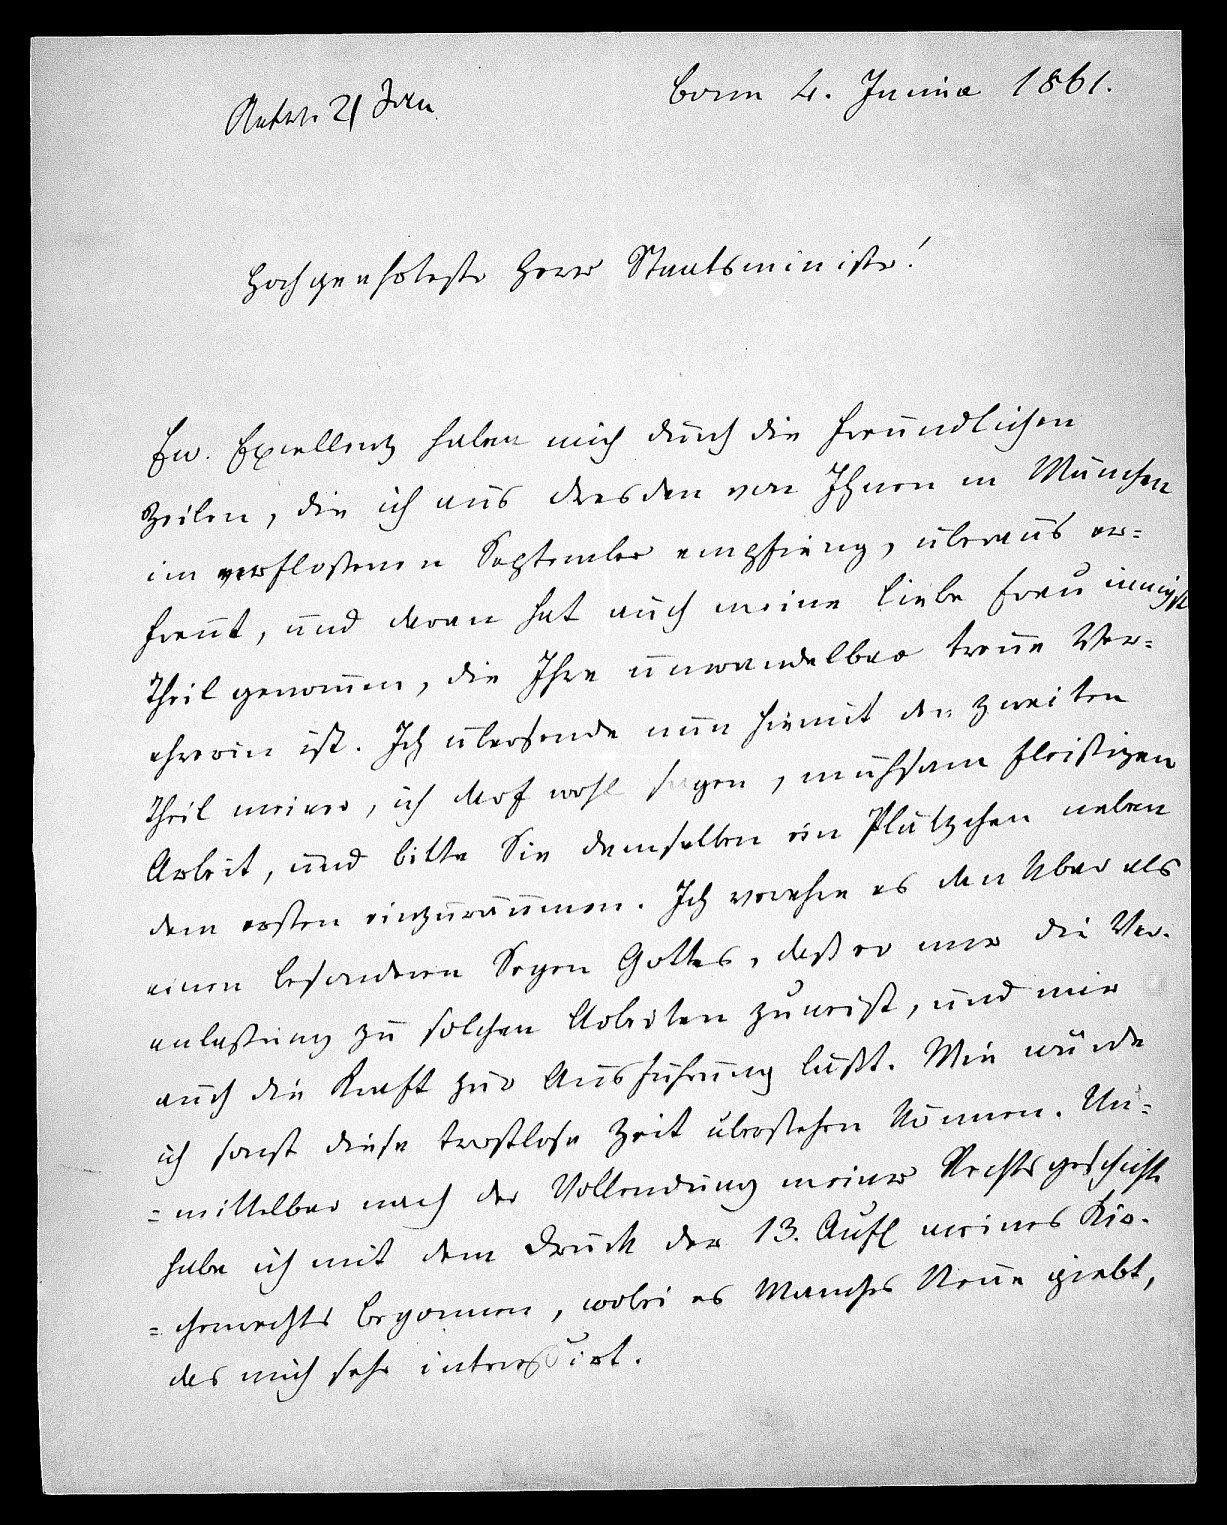 Antw. 21 Jan
Bonn 4. Januar 1861.
Hochgeehrtester Herr Staatsminister!
Ew. Excellenz haben mich durch die freundlichen
Zeilen, die ich aus Dresden von Ihnen in München
im verfloßenen September empfieng, überaus er=
freut, und daran hat auch meine liebe Frau innigst
Theil genommen, die Ihre unwandelbar treue Ver=
ehrerin ist. Ich übersende nun hiemit den zweiten
Theil meiner, ich darf wohl sagen, mühsam fleißigen
Arbeit, und bitte Sie demselben ein Plätzchen neben
dem ersten einzuräumen. Ich verehre es den über als
einen besonderen Segen Gottes, daß er mir die Ver-
anlaßung zu solchen Arbeiten zuweist, und mir
auch die Kraft zur Ausführung läßt. Wie würde
ich sonst diese trostlose Zeit überstehen können. Un=
=mittelbar nach der Vollendung meiner Rechtsgeschichte
habe ich mit dem Druck der 13. Aufl meines Kir-
=chenrechts begonnen, wobei es Manches Neue giebt,
das mich sehr interessirt.